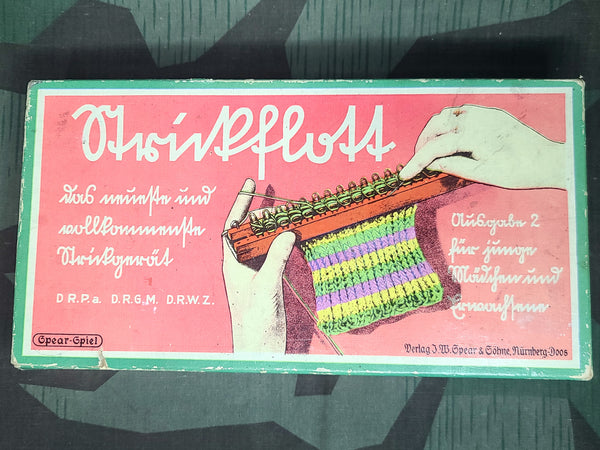 Strickflott
das neueste und
vollkommenste
Strickgerät
D R.P.a. D.R.G.M. D.R.W.Z.
Ausgabe 2
für junge
Mädchen und
Erwachsene
Spear-Spiel
Verlag J. W. Spear & Söhne, Nürnberg-Doos